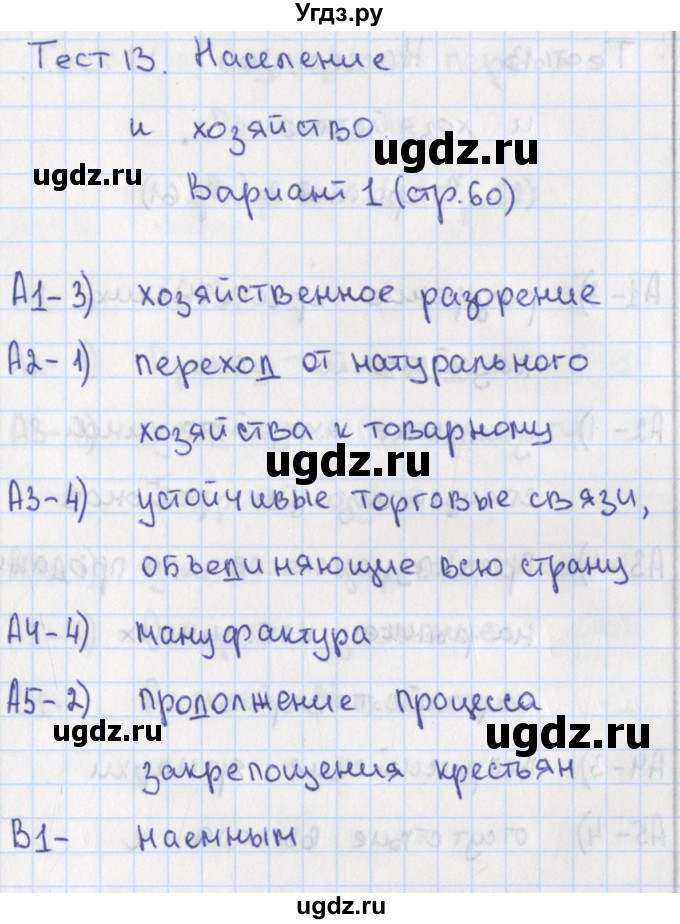 Угдз.ру
Тест 13. Население
и хозяйство
ugdz.ru
ugdz.ru
Вариант 1 (стр. 60)
А1-3) хозяйственное разорение
А2-1) переход от натурального
хозяйства к товарному
ugdz.ru
А3-4) устойчивые торговые связи,
объединяющие всю страну
А4-4) мануфактура
А5-2) продолжение процесса
ugdz.ru
ugdz.ru
закрепощения крестьян
В1- наемным
ugdz.ru